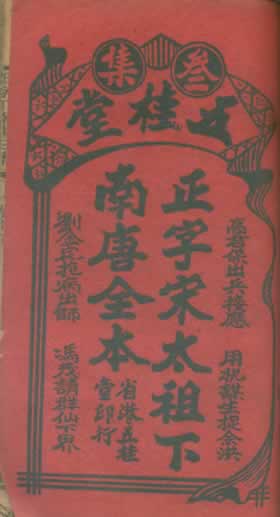 叁集
五桂堂
高君保出兵接應
用謀生捉余洪
正字宋太祖下
南唐全本
省港五桂
堂印行
劉金定抱病出師
馮茂請群仙下界